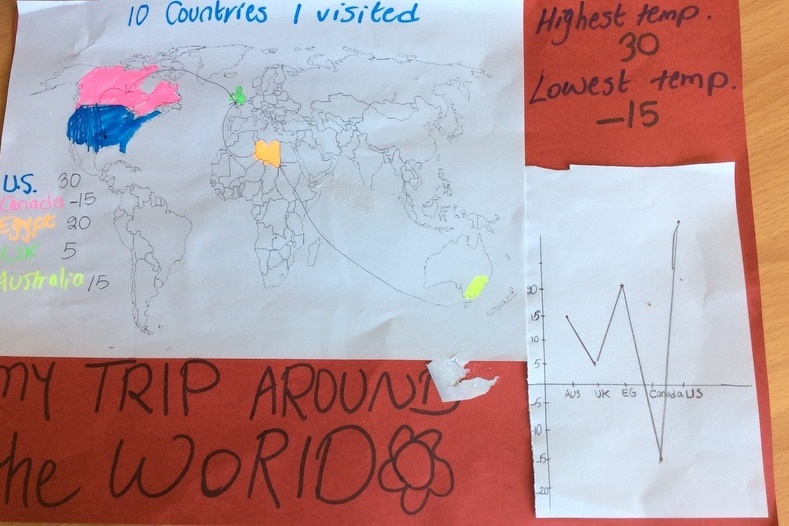 10 Countries I visited
U.S. 30
Canada -15
Egypt 20
UK 5
Australia 15
MY TRIP AROUND
the WORlD
Highest temp.
30
Lowest temp.
-15
20
15
10
5
AUS UK EG Canada US
-5
-10
-15
-20